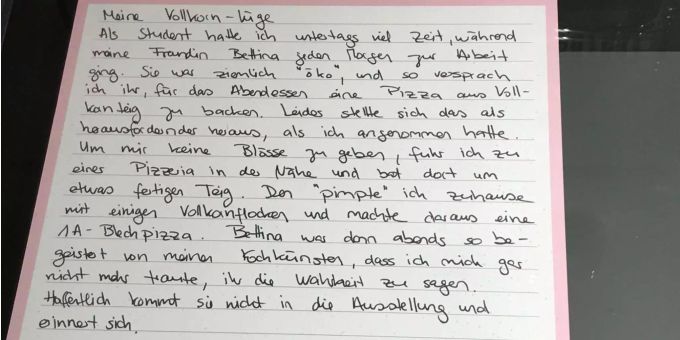 Meine Vollkorn-Lüge
Als Student hatte ich untertags viel Zeit, während
meine Freundin Bettina jeden Morgen zur Arbeit
ging. Sie war ziemlich "öko", und so versprach
ich ihr, für das Abendessen eine Pizza aus Voll-
kornteig zu backen. Leider stellte sich das als
herausfordernder heraus, als ich angenommen hatte.
Um mir keine Blösse zu geben, fuhr ich zu
einer Pizzeria in der Nähe und bat dort um
etwas fertigen Teig. Den "pimpte" ich zuhause
mit einigen Vollkornflocken und machte daraus eine
1A-Blechpizza. Bettina war dann abends so be-
geistert von meinen Kochkünsten, dass ich mich gar
nicht mehr traute, ihr die Wahrheit zu sagen.
Hoffentlich kommt sie nicht in die Ausstellung und
erinnert sich.